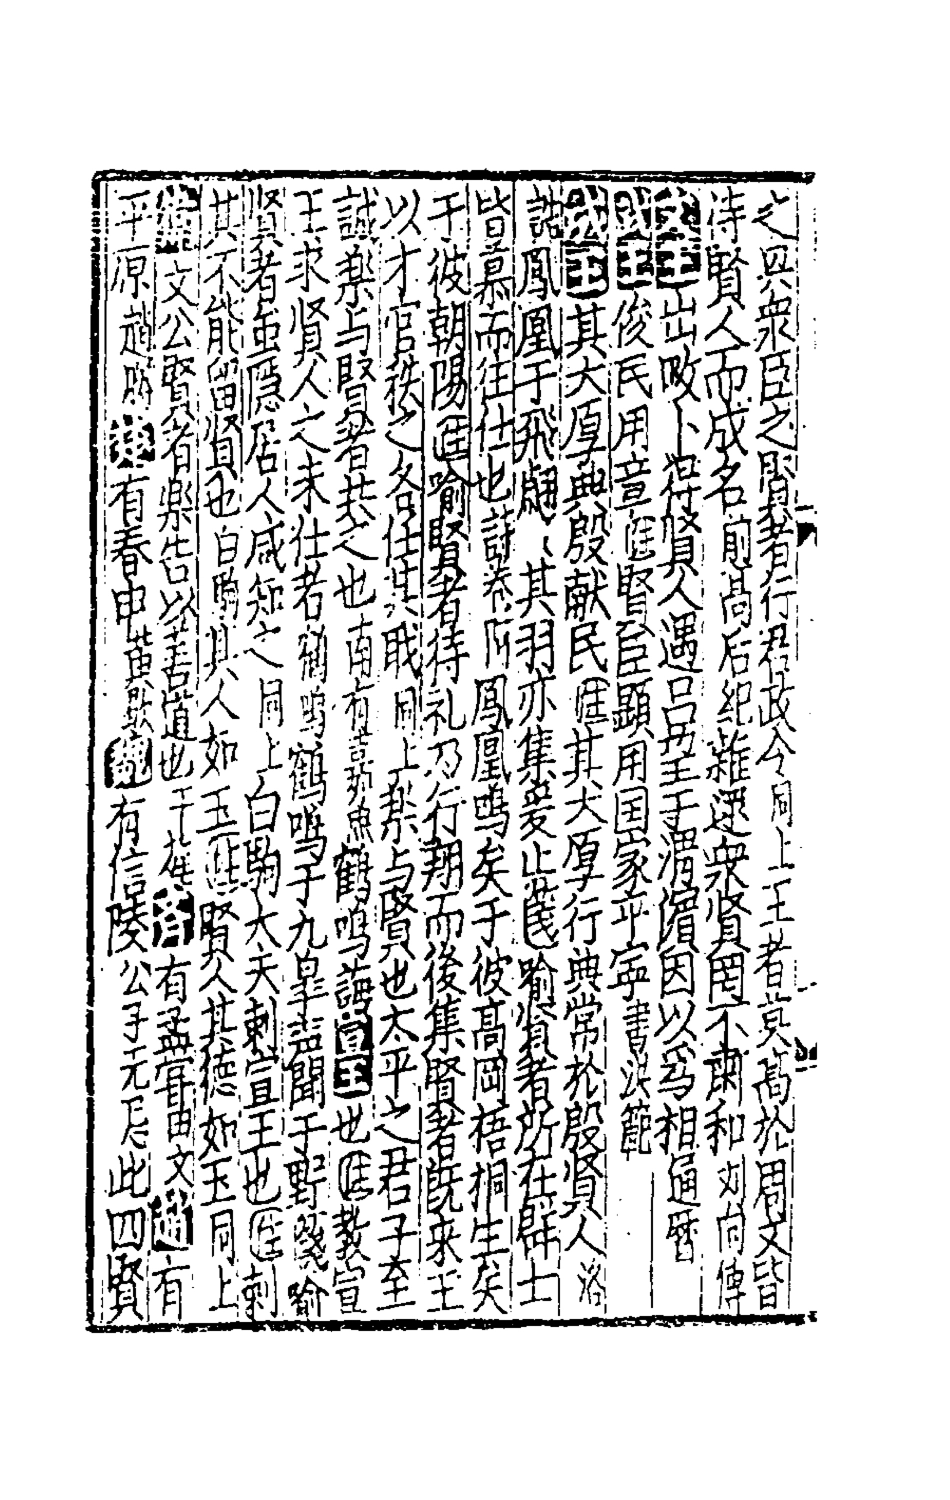 之與衆臣之賢者行君政令同上王者莫髙於周文皆
待賢人而成名前髙后紀雜遝衆賢罔不肅和刘向傳
文王出畋卜得賢人遇吕望于渭濱因以爲相通暦
武王俊民用章注賢臣顕用国家平寍書洪範
成王其大厚典殷献民注其大厚行典常於殷賢人洛
誥鳳凰于飛翽〻其羽亦集爰止箋喻賢者所在群士
皆慕而往仕也詩卷阿鳳凰鳴矣于彼髙岡梧桐生矣
于彼朝陽注喻賢者待礼乃行翔而後集賢者既来王
以才官秩之各任其戝同上楽与賢也太平之君子至
誠楽与賢者共之也南有嘉魚鶴鳴誨宣王也注教宣
王求贤人之未仕者鶴鳴鶴鳴于九皐声聞于野箋喻
贤者虽隠居人咸知之同上白駒大夫刺宣王也注刺
其不能留賢也白駒其人如玉注賢人其德如玉同上
衛文公賢者楽告以善道也干旄齊有孟甞田文趙有
平原趙勝楚有春申黄歇魏有信陵公子无忌此四賢